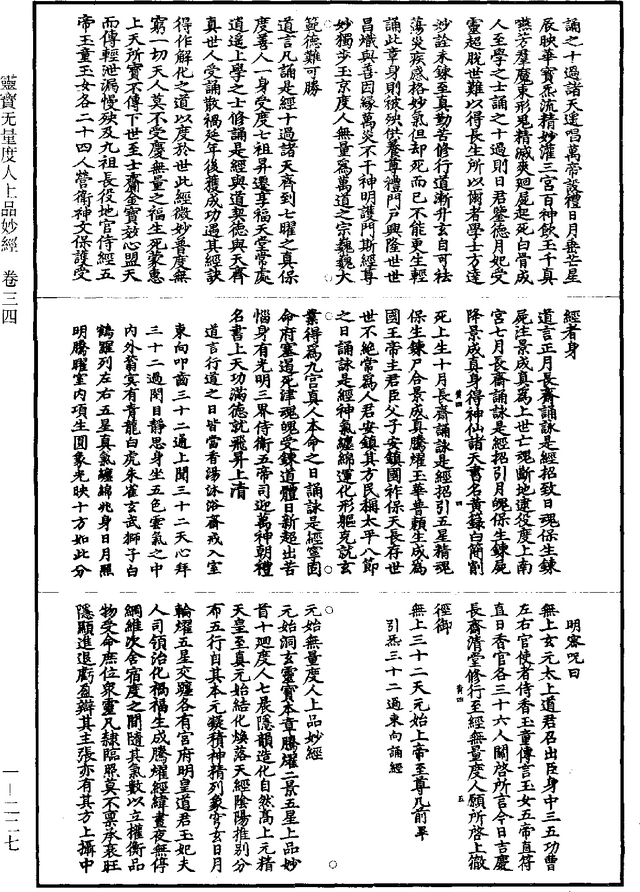 誦之十過諸天遥唱萬帝設禮日月垂芒星
辰映華寶炁流精妙灌三宮百神飲玉千真
嚥芳羣魔束形鬼精滅爽迴屍起死白骨成
人至學之士誦之十過則日君鑒德月妃受
靈超脫世難以得長生所以備者學士方達
妙詮未鍊至真勤苦修行道漸升玄自可祛
蕩災疾感格妙氣但却死而已不能更生輕
誦此章身則被殃供養尊禮門戶興隆世世
昌熾與善因緣萬災不干神明護門斯經尊
妙獨步玉京度人無量爲萬道之宗巍巍大
範德難可勝
道言凡誦是經十過諸天齊到七曜之真保
度善人一身受度七祖昇遷享福天堂常處
逍遥上學之士修誦是經與道契德與天齊
真世人受誦散禍延年後獲成功遇其經訣
得作解化之道以度於世此經微妙普度無
窮一切天人莫不受慶無量之福生死蒙惠
上天所寶不傳下世至士齎金寶效心盟天
而傳輕泄漏慢殃及九祖長役地官侍經五
帝玉童玉女各二十四人營衛神文保護受
經者身
道言正月長齋誦詠是經招致日魂保生鍊
屍注景成真爲上世亡魂斷地逮役度上南
宮七月長齋誦詠是經招引月魄保生鍊屍
降景成真身得神仙諸天書名黃籙白簡削
死上生十月長齋誦詠是經招引五星精魂
保生鍊尸合景成真騰耀玉華普賴生成爲
國王帝主君臣父子安鎮國祚保天長存世
世不絕常爲人君安鎮其方民稱太平八節
之日誦詠是經神氣纏綿運化形軀克就玄
業得爲九宮真人本命之日誦詠是經寧固
命府塞遏死津魂魄受鍊道體日新超出苦
惱身有光明三界侍衛五帝司迎萬神朝禮
名書上天功滿德就飛昇上清
道言行道之日皆當香湯沐浴齋戒入室
東向叩齒三十二通上聞三十二天心拜
三十二過閉目靜思身坐五色雲氣之中
內外蓊冥有青龍白虎朱雀玄武獅子白
鶴羅列左右五星真氣纏綿兆身日月照
明騰曜室內項生圓象光映十方如此分
明密咒曰
無上玄元太上道君召出臣身中三五功曹
左右官使者侍香玉童傳言玉女五帝直符
直日香官各三十六人關啓所言今日吉慶
長齋清堂修行至經無量度人願所啓上徹
徑御
無上三十二天元始上帝至尊几前畢
引炁三十二過東向誦經
元始無量度人上品妙經
元始洞玄靈寶本章騰耀二景五星上品妙
首十迴度人七晨隱韻造化自然高上元精
天皇至真元始結化煥落天經陰陽推別分
布五行自其本元凝積神精列象穹玄日月
輪燿五星交躔各有官府明皇道君玉妃夫
人司領治化禍福生成騰耀經緯晝夜無停
綱維次舍宿度之間隨其氣數以立權衡品
物受命庶位衆靈凡隸臨照莫不禀承衰旺
隱顯進退虧盈辯其主張亦有其方上攝中
靈寶无量度人上品妙經　卷三四
一—二二七